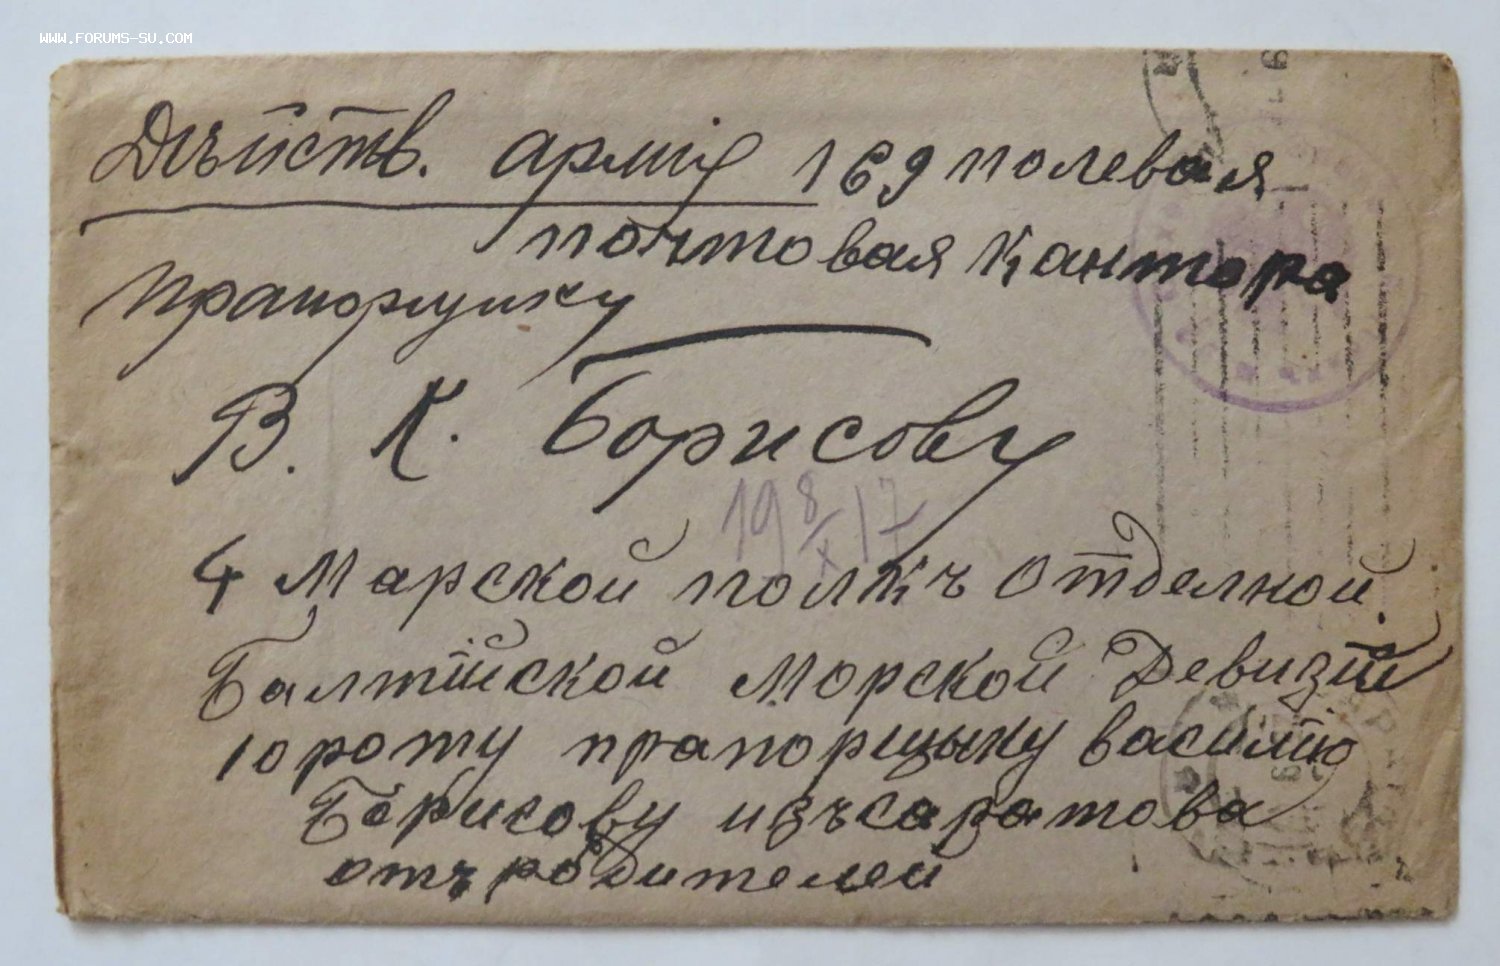 WWW.FORUMS-SU.COM
Дѣйств. армія 169 полевая
почтовая кантора
Прапорщику
В. К. Борисову
19 8/X 17
4 Марской полкъ отделной
Балтійской Морской Девизіи
10 роту прапорщыку василію
Борисову изъ саратова
отъ родителей